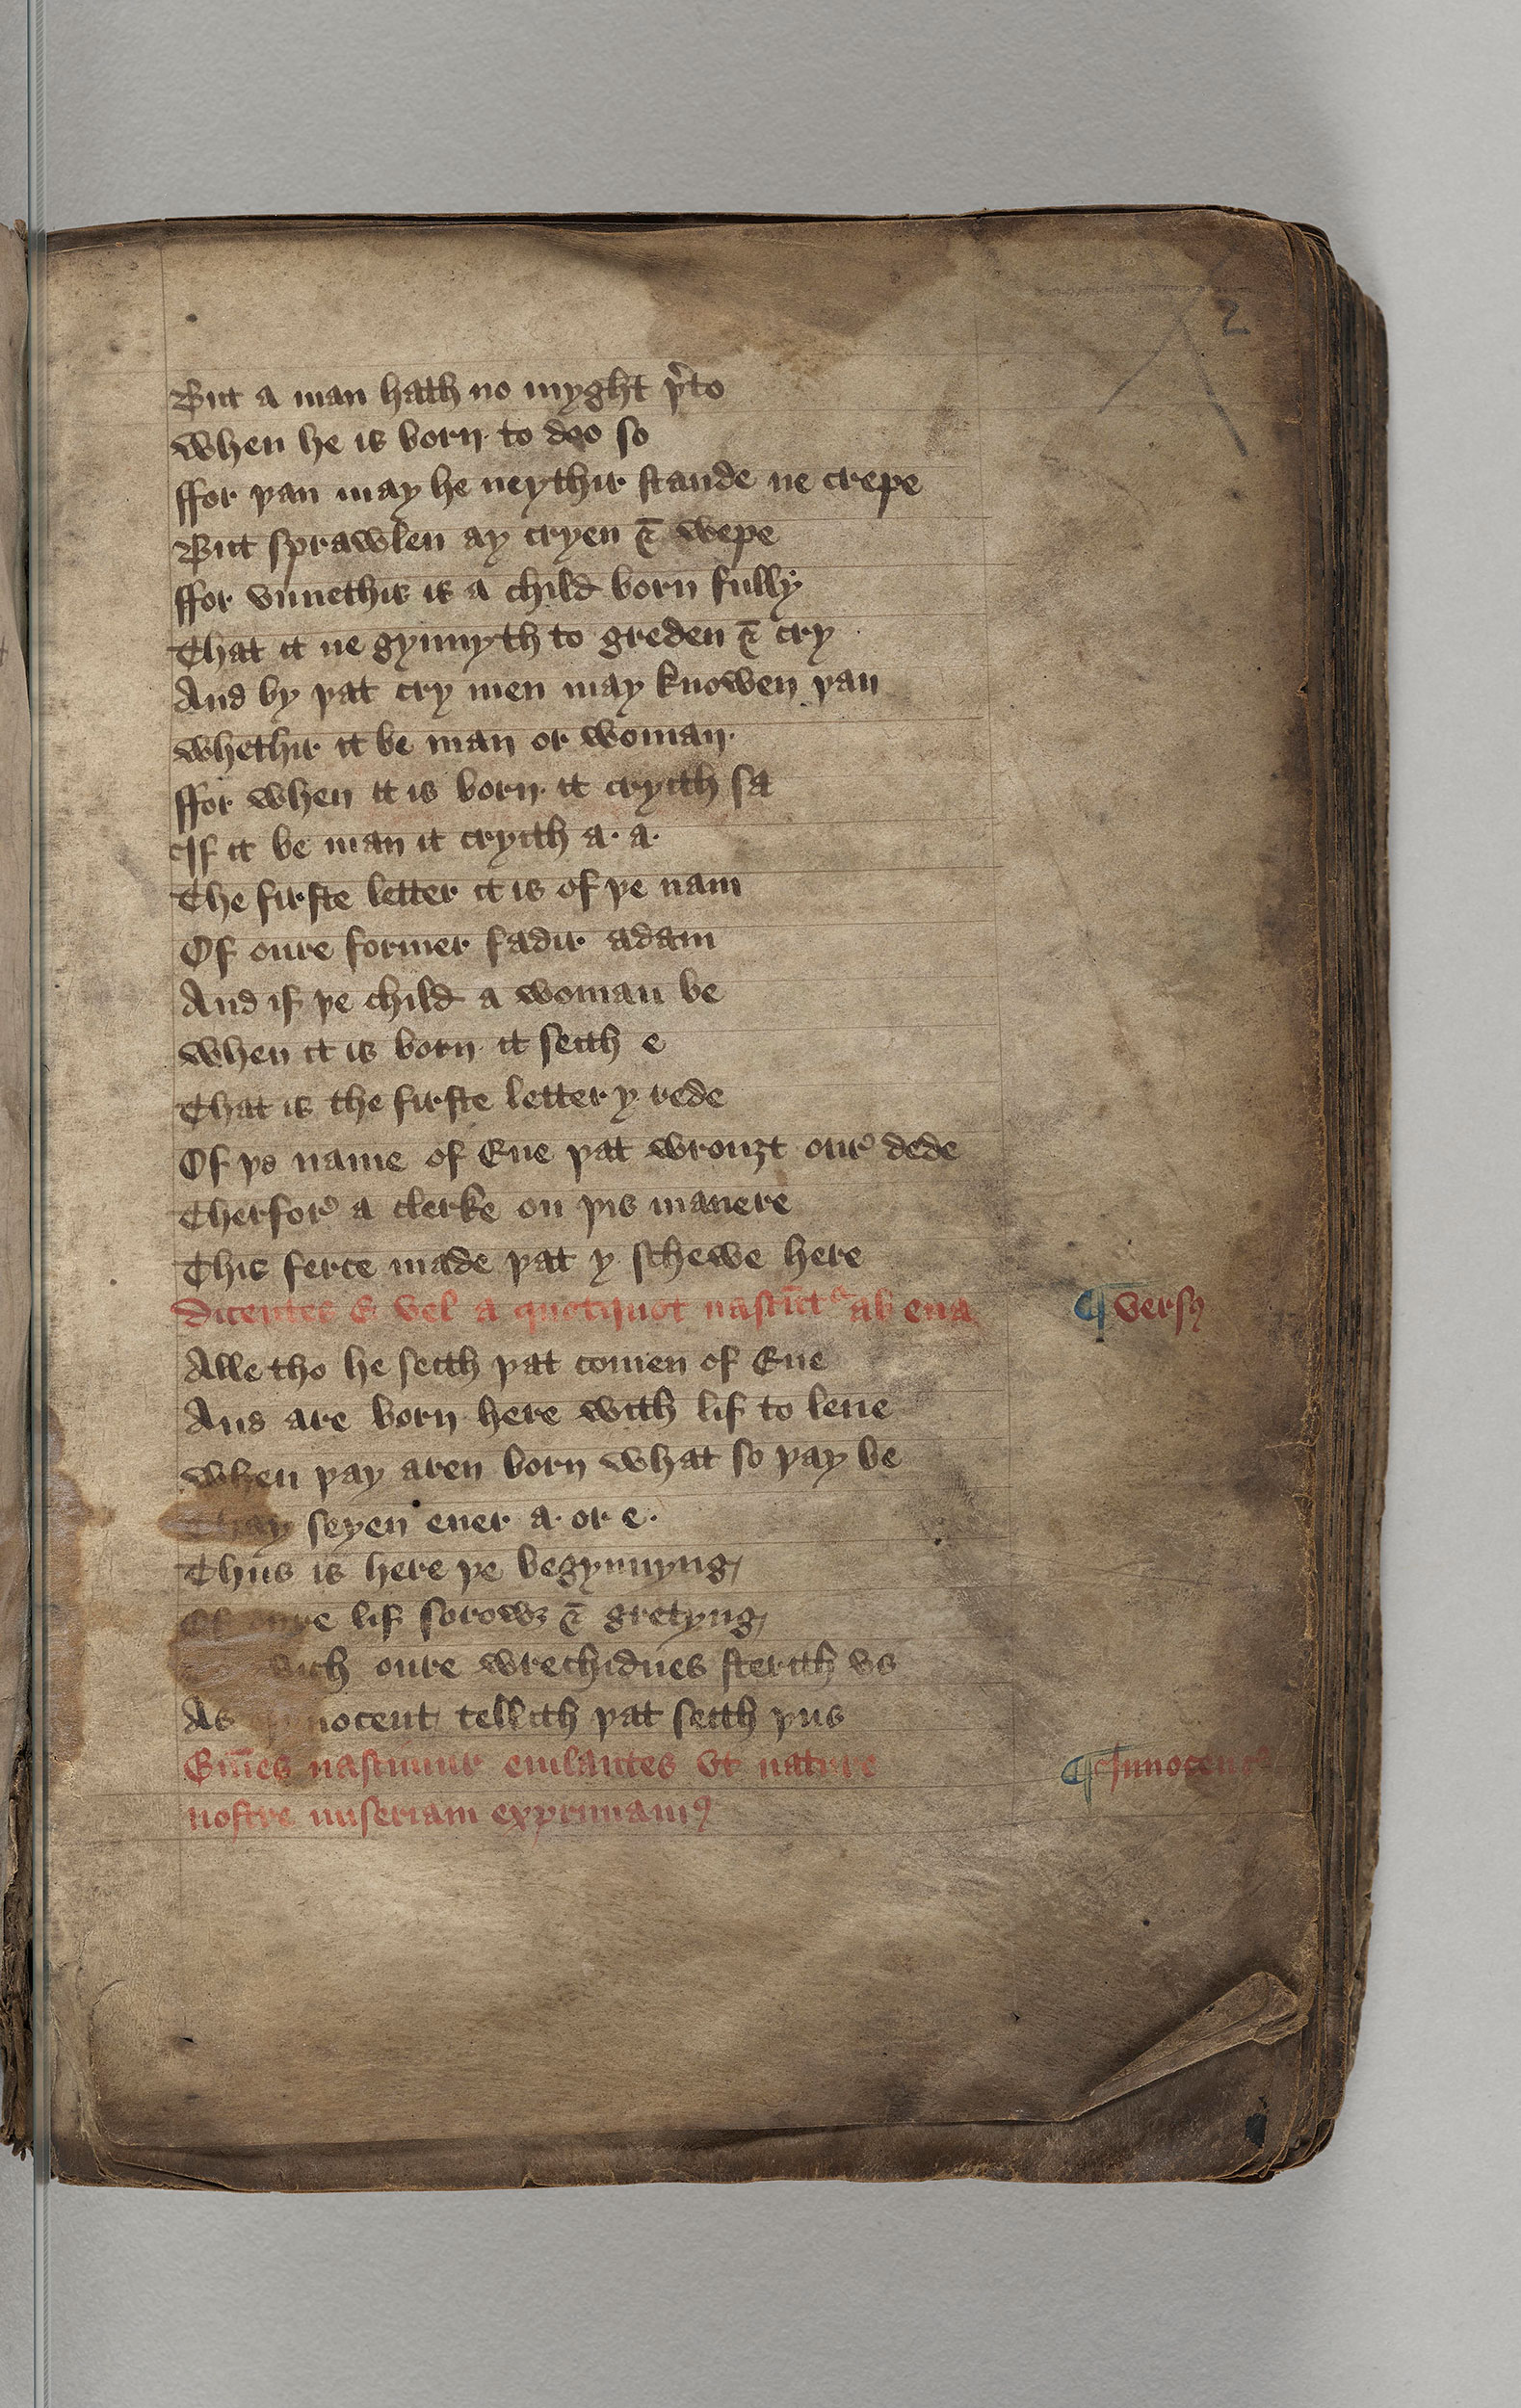 2
But a man hath no myght þ'to
when he is born to doo so
ffor þan may he neythir stande ne crepe
But sprawlen ay cryen & wepe
ffor vnnethis is a child born fully
That it ne gynnyth to greden & cry
And by þat cry men may knowen þan
whethir it be man or woman·
ffor when it is born· it cryith sa
If it be man it cryith a· a·
The firste letter it is of þe nam
Of oure former fadir adam
And if þe child a woman be
when it is born· it seith e
That is the firste letter y rede
Of þe name of Eue þat wrouȝt our' dede
Therfor' a clerke on þis manere
This ferce made þat y schewe here
dicentes E vel a quotquot nascūt^r ab eua ¶ versꝯ
Alle tho he seith þat comen of Eue
And are born· here with lif to leue
when þay aren born what so þay be
Thay seyen euer a· or e·
Thus is here þe begynnyng
Of oure lif sorowȝ & gretyng
oure wrechidnes sterith vs
As nocent tellith þat seith þus
Om̄es nascimur eiulantes vt nature ¶ Innocenc'
nostre miseriam exprimamꝯ